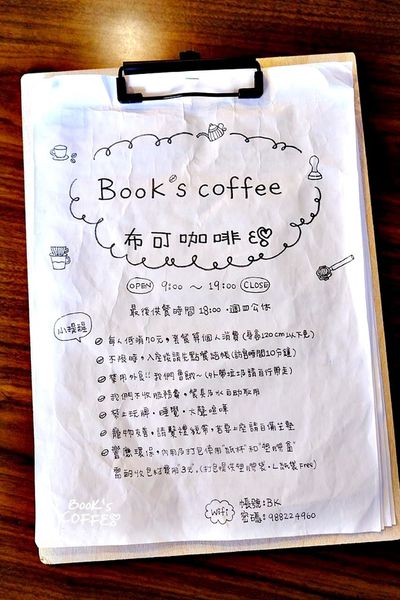 Book's coffee
布可咖啡
OPEN 9:00 ~ 19:00 CLOSE
最後供餐時間 18:00 ·週四公休
小提醒
每人低消70元,套餐算個人消費(身高120cm以下免)
不限時,入座後請先點餐結帳(訪客時間10分鐘)
禁用外食!! 我們會餓~(外帶垃圾請自行帶走)
我們不收服務費,餐具及水自助取用
禁止玩牌、睡覺、大聲喧嘩
寵物友善,請繫禮貌帶,若要上座請自備坐墊
響應環保,內用及打包使用"紙杯"和"塑膠盒"
需酌收包材費用3元,(打包提供塑膠袋、L紙袋 Free)
Wifi
帳號:BK
密碼:988224960
BOOK'S
COFFEE